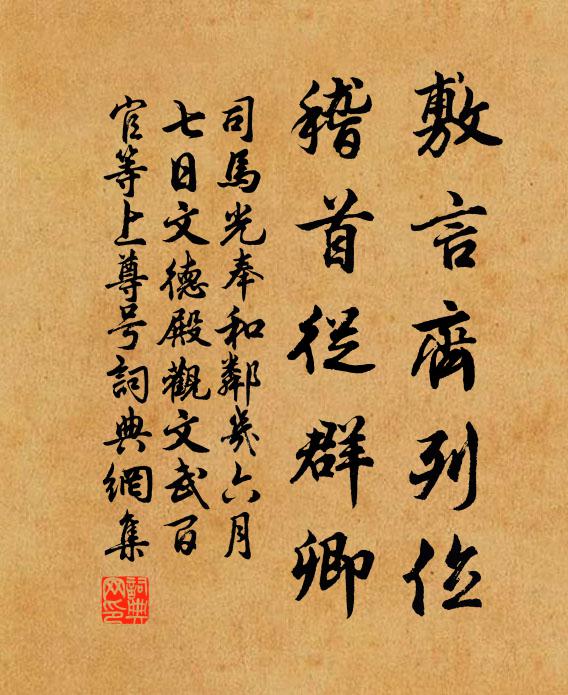 敷言齊列位
稽首從群卿
司馬光奉和鄰幾六月
七日文德殿觀文武百
官等上尊号詞典網集
詞典网印